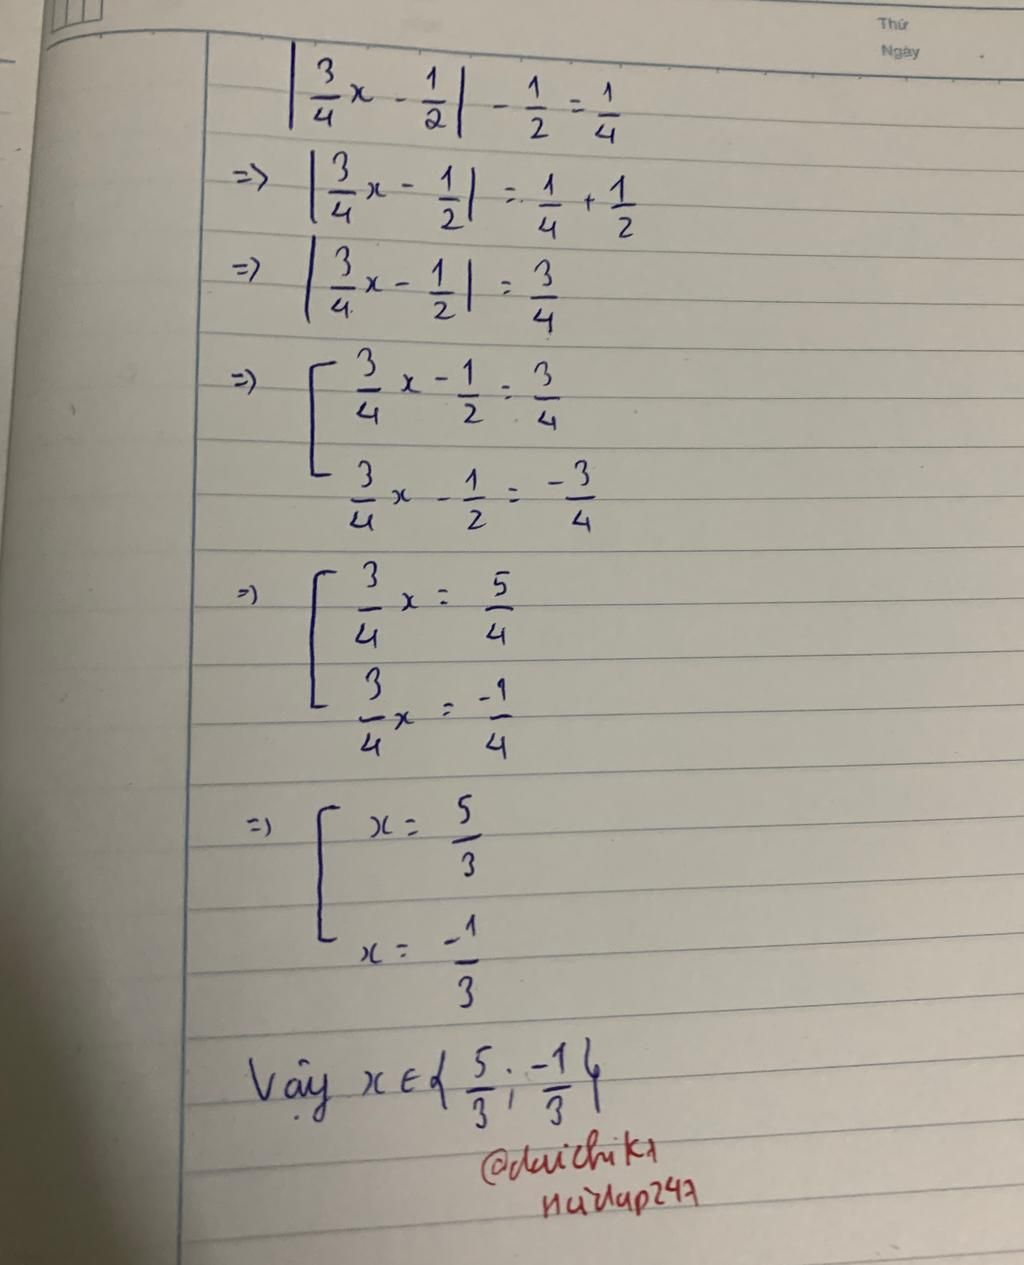 Thứ
Ngày
|3/4 x - 1/2| - 1/2 = 1/4
=> |3/4 x - 1/2| = 1/4 + 1/2
=> |3/4 x - 1/2| = 3/4
=> [ 3/4 x - 1/2 = 3/4
3/4 x - 1/2 = -3/4
=> [ 3/4 x = 5/4
3/4 x = -1/4
=> [ x = 5/3
x = -1/3
Vậy x ∈ { 5/3 ; -1/3 }